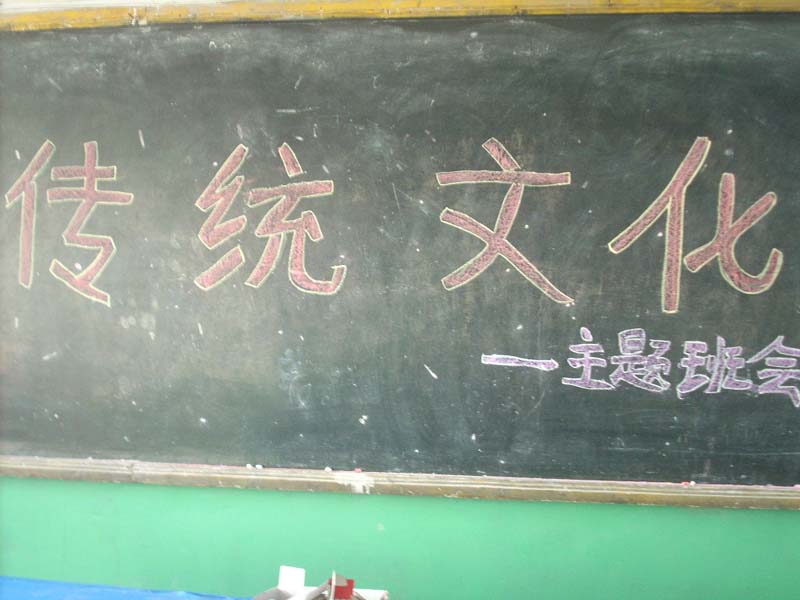 传统文化
—主题班会